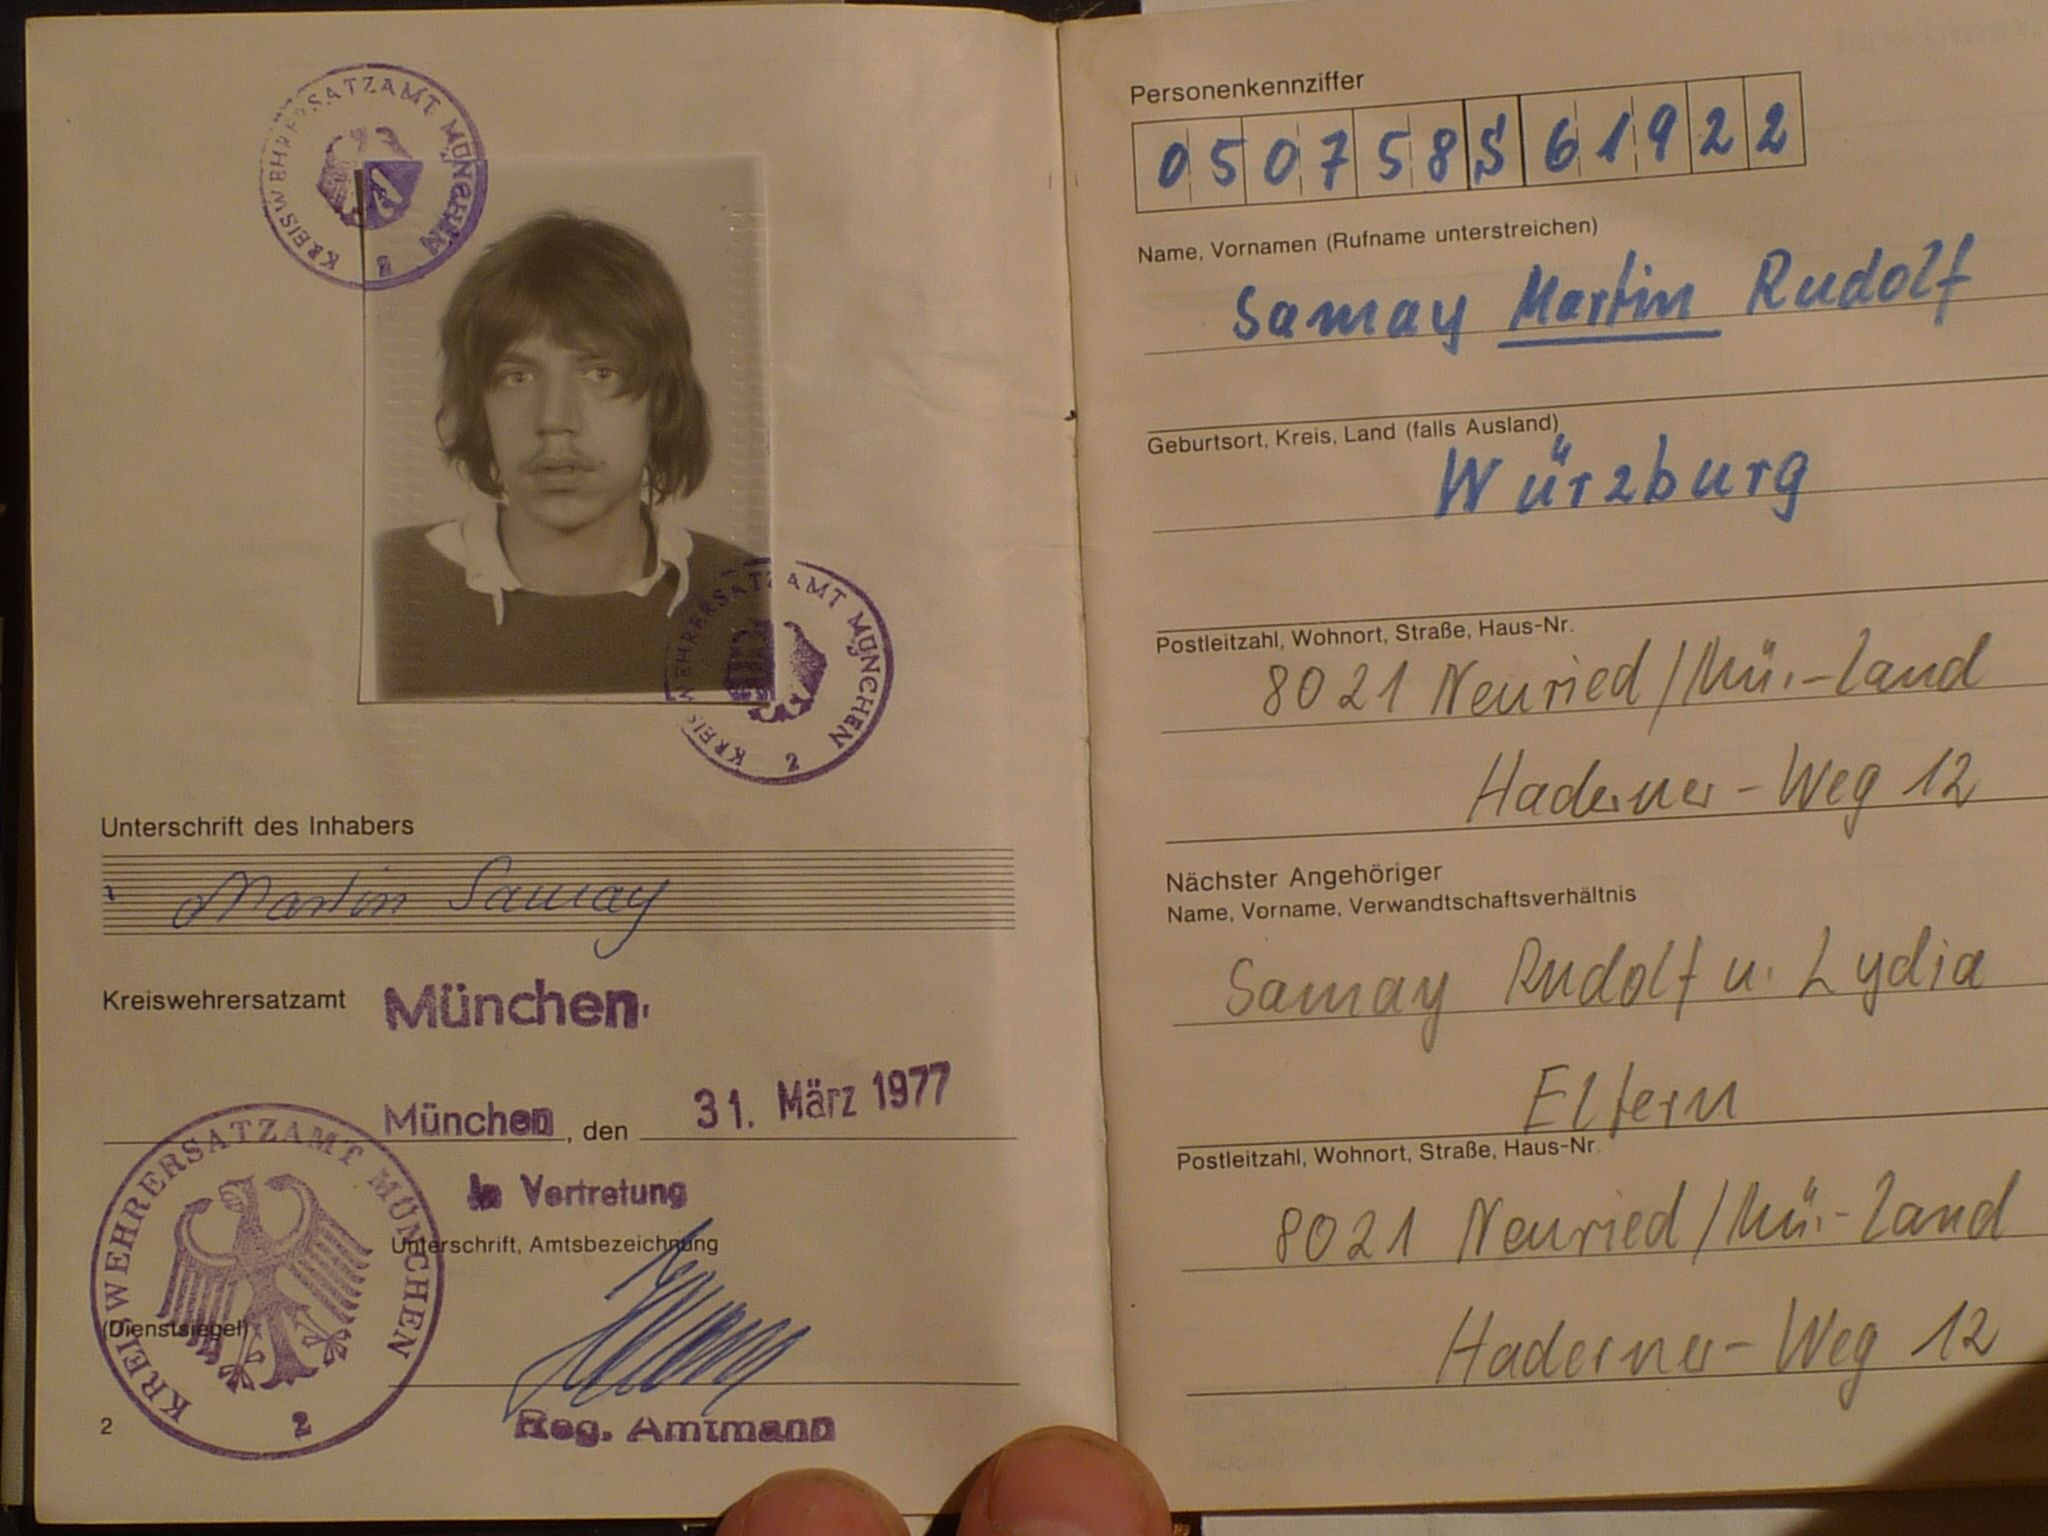 KREISWEHRERSATZAMT MÜNCHEN
2
KREISWEHRERSATZAMT MÜNCHEN
2
Unterschrift des Inhabers
Martin Samay
Kreiswehrersatzamt München
München, den 31. März 1977
In Vertretung
Unterschrift, Amtsbezeichnung
KREISWEHRERSATZAMT MÜNCHEN
2
(Dienstsiegel)
Reg. Amtmann
2
Personenkennziffer
050758S61922
Name, Vornamen (Rufname unterstreichen)
Samay Martin Rudolf
Geburtsort, Kreis, Land (falls Ausland)
Würzburg
Postleitzahl, Wohnort, Straße, Haus-Nr.
8021 Neuried/Mü.-Land
Haderner-Weg 12
Nächster Angehöriger
Name, Vorname, Verwandtschaftsverhältnis
Samay Rudolf u. Lydia
Eltern
Postleitzahl, Wohnort, Straße, Haus-Nr.
8021 Neuried/Mü.-Land
Haderner-Weg 12